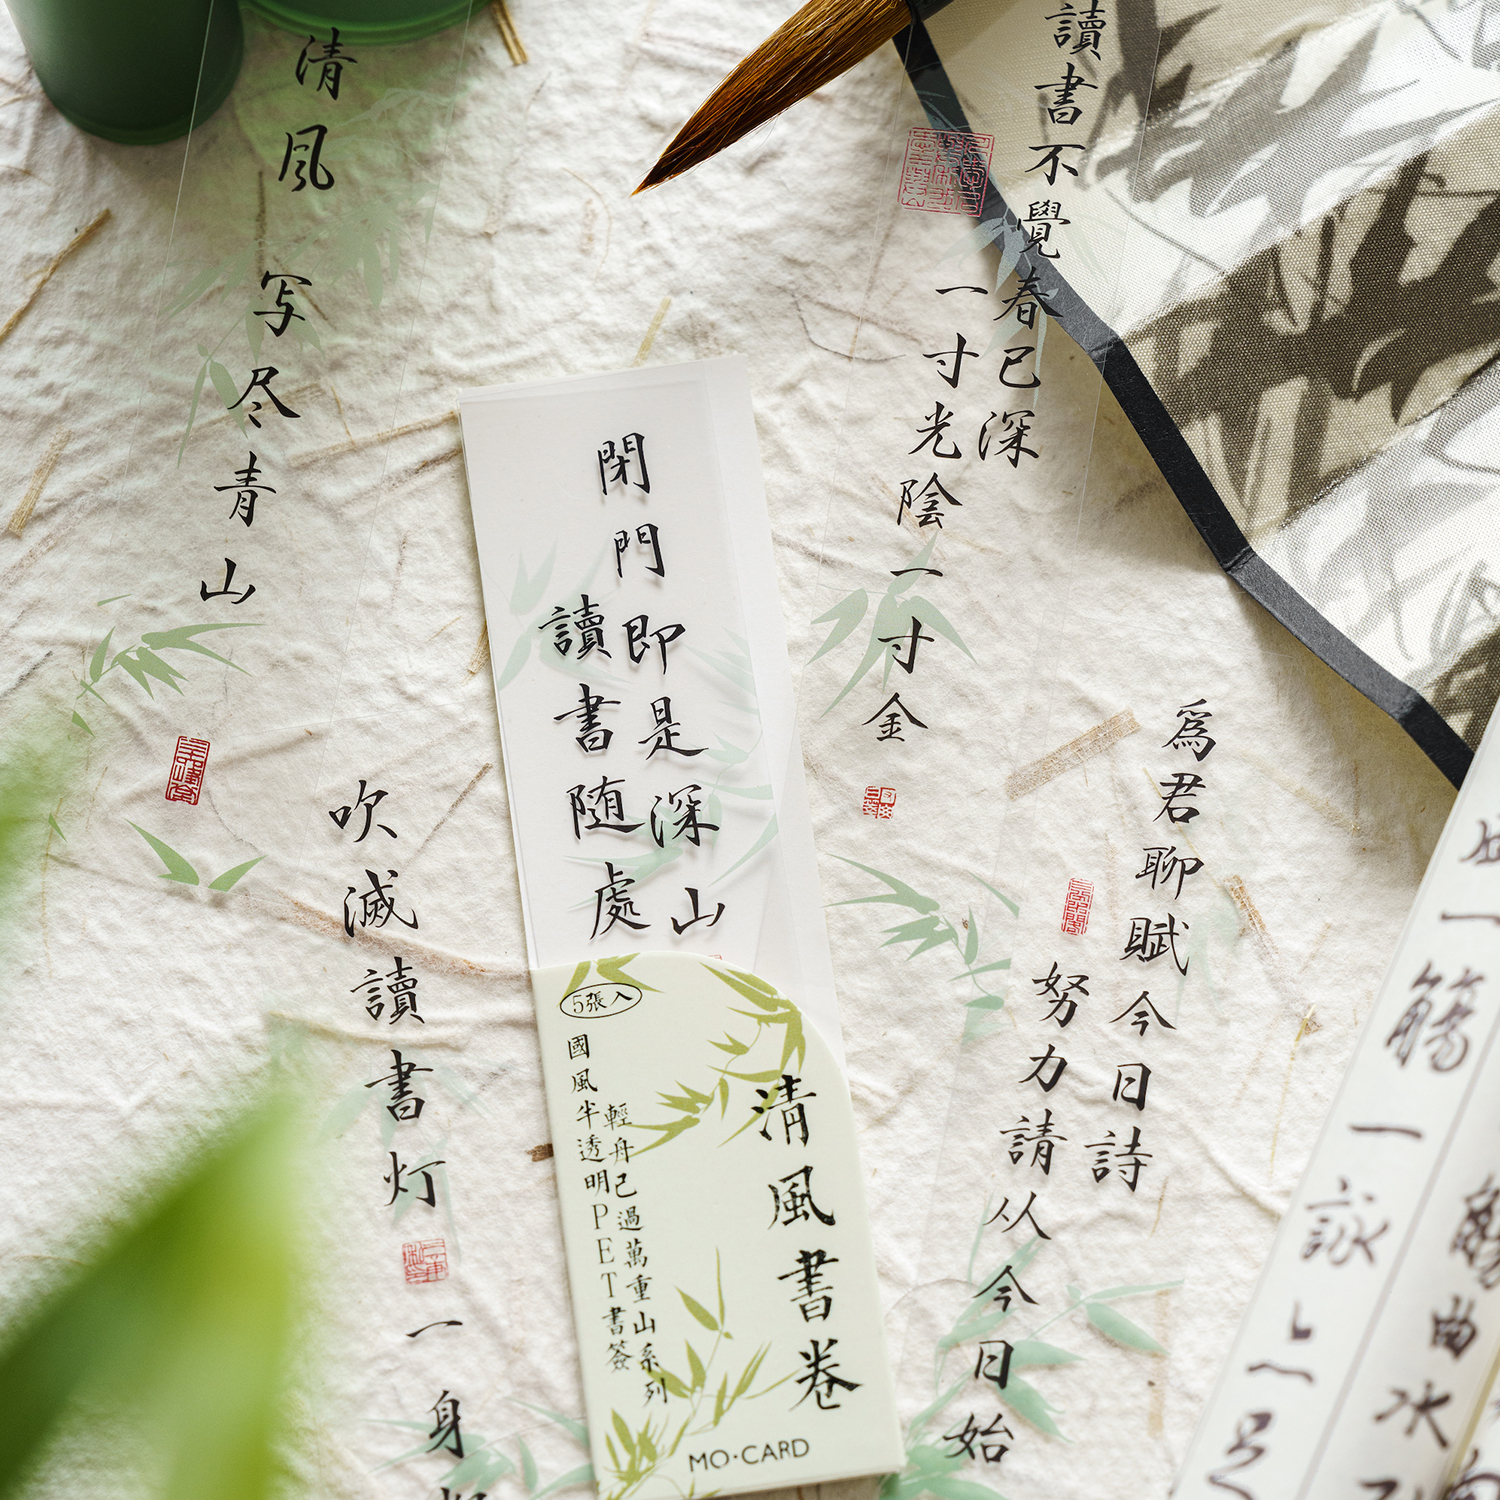 清風
写尽青山
讀書不覺春已深
一寸光陰一寸金
閉門即是深山
讀書随處
為君聊賦今日詩
努力請从今日始
吹滅讀書灯
一身
5張入
清風書卷
輕舟已過萬重山系列
國風半透明PET書簽
MO·CARD
一觴一詠
曲水